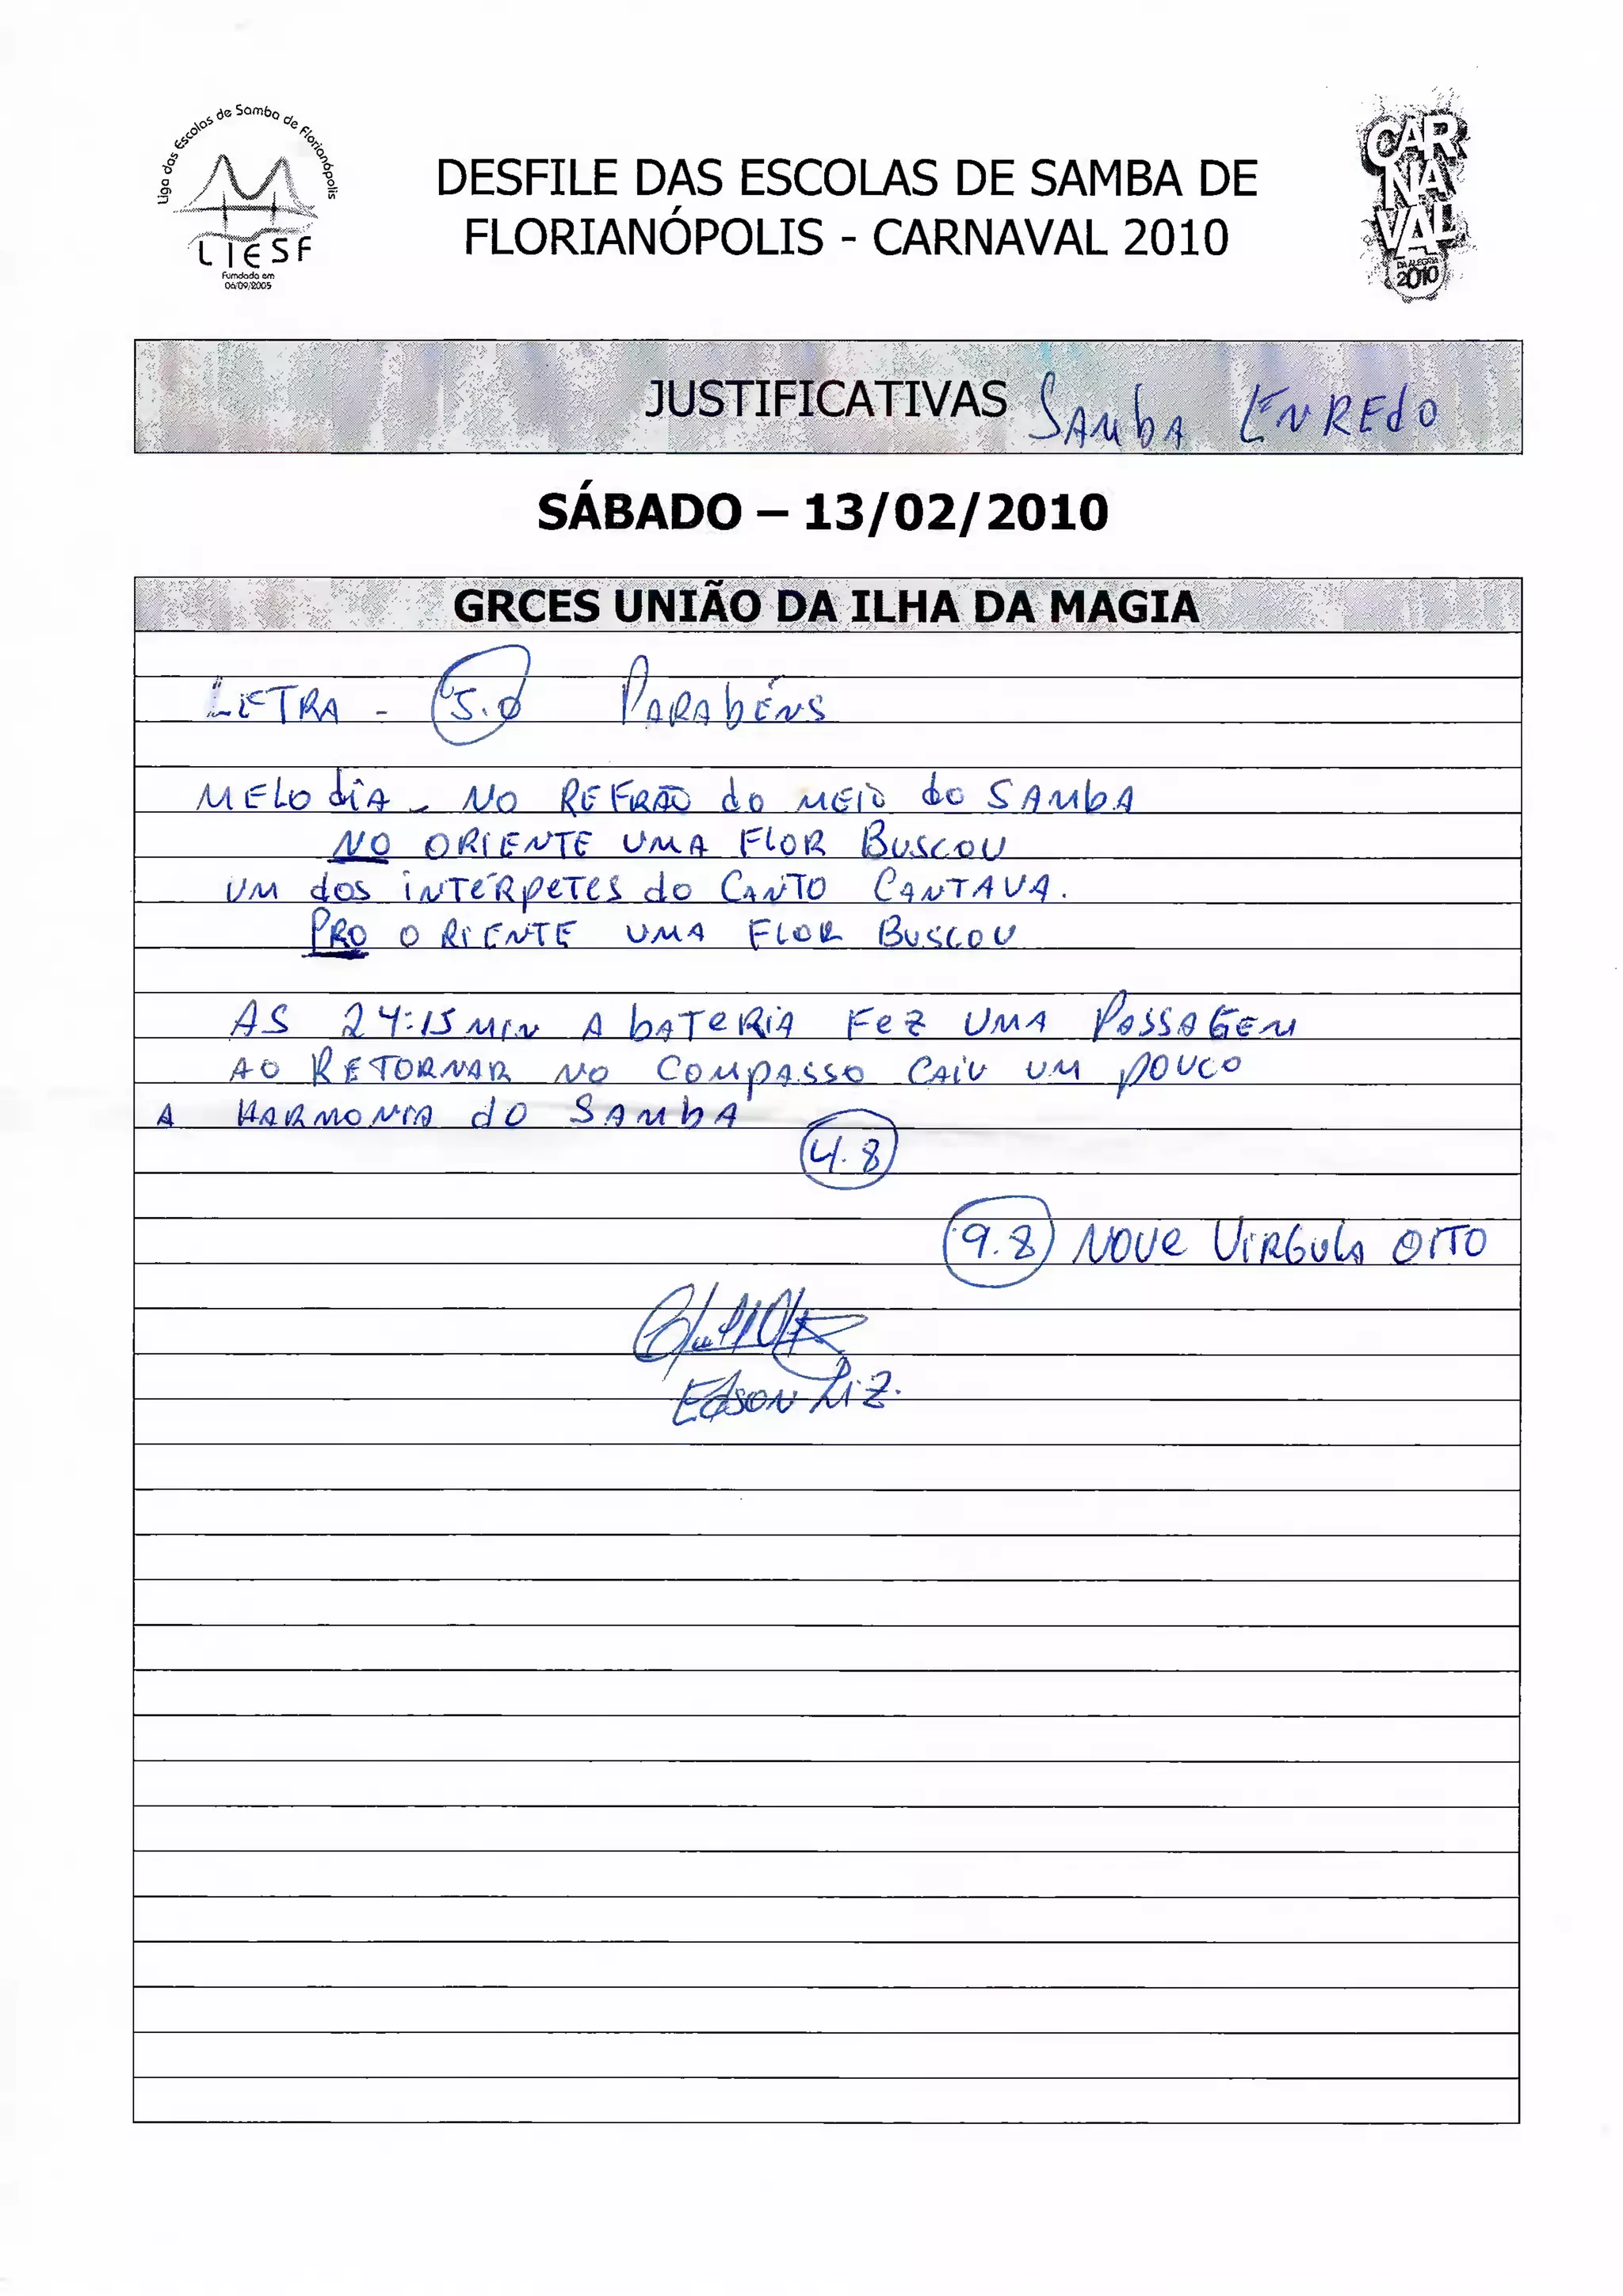 Liga das Escolas de Samba de Florianópolis
LIESF
Fumdada em
06/09/2005
DESFILE DAS ESCOLAS DE SAMBA DE
FLORIANÓPOLIS - CARNAVAL 2010
CAR
NA
VAL
DA ALEGRIA
2010
JUSTIFICATIVAS SAMbA ENREdo
SÁBADO – 13/02/2010
GRCES UNIÃO DA ILHA DA MAGIA
LETRA - 5.0 PARAbÉNS
MELodiA - NO REFRÃO do MEIO do SAMbA
NO ORIENTE UMA FLOR BUSCOU
UM dos iNTéRpeTes do CANTO CANTAVA.
PRO ORIENTE UMA FLOR BUSCOU
AS 24:15 MIN A bATeRiA FeZ UMA PASSAGEM
AO RETORNAR NO COMpASSO CAiU UM pOUCO
A HARMONIA dO SAMbA
4.8
9.8 NOVe ViRGulA OITO
EdSON LiZ.